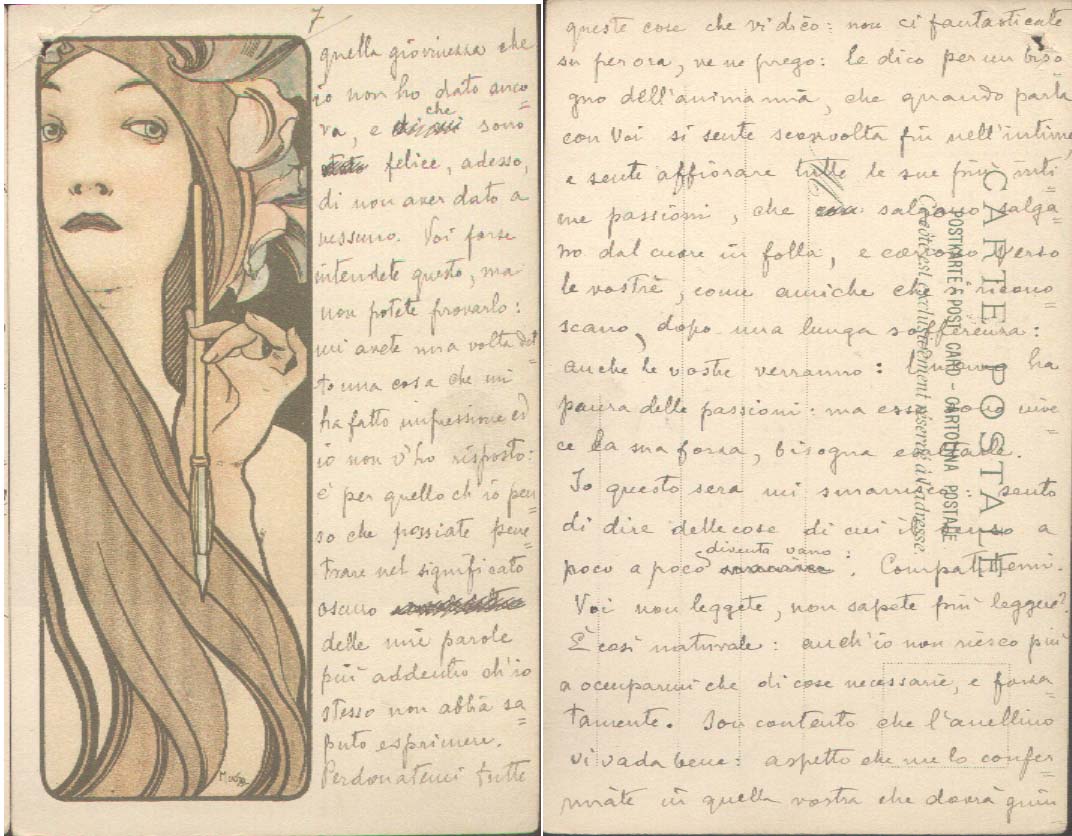 7
quella giovinezza che
io non ho dato anco=
va, e che sono
felice, adesso,
di non aver dato a
nessuno. Voi forse
intendete questo, ma
non potete provarlo:
mi avete una volta det=
to una cosa che mi
ha fatto impressione ed
io non v'ho risposto:
è per quello ch'io pen
so che possiate pene=
trare nel significato
oscuro
delle mie parole
più addentro ch'io
stesso non abbia sa=
puto esprimere.
Perdonatemi tutte
Mucha
queste cose che vi dico: non ci fantasticate
su per ora, ve ne prego: le dico per un biso
gno dell'anima mia, che quando parla
con Voi si sente sconvolta più nell'intimo,
e sente affiorare tutte le sue più inti=
me passioni, che salgono salga=
no dal cuore in folla, e corrono verso
le vostre, come amiche che si ricono=
scano, dopo una lunga sofferenza:
anche le vostre verranno: ha
paura delle passioni: ma esse sono
ce la sua forza, bisogna
Io questo sera mi smarrisco: sento
di dire delle cose di cui il senso a
poco a poco diventa vano: Compatitemi.
Voi non leggete, non sapete più leggere?
È così naturale: anch'io non riesco più
a occuparmi che di cose necessarie, e forza=
tamente. Son contento che l'anellino
vi vada bene: aspetto che me lo confer=
miate in quella vostra che dovrà giun
CARTE POSTALE
POSTKARTE & POST CARD - CARTOLINA POSTALE
Ce côté est exclusivement réservé à l'adresse